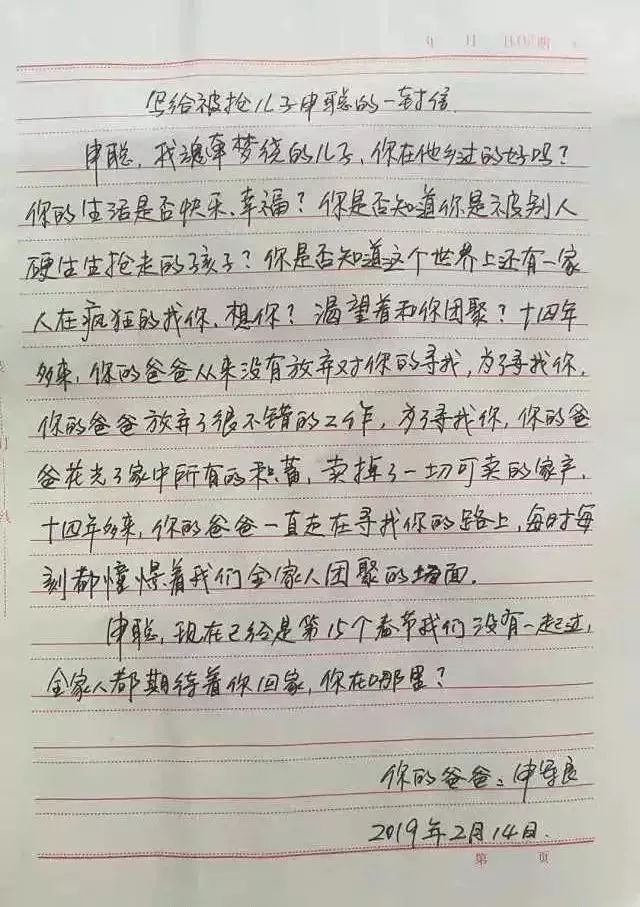 年 月 日
写给被抢儿子申聪的一封信.
申聪, 我魂牵梦绕的儿子, 你在他乡过的好吗?
你的生活是否快乐、幸福? 你是否知道你是被别人
硬生生抢走的孩子? 你是否知道这个世界上还有一家
人在疯狂的找你, 想你? 渴望着和你团聚? 十四年
多来, 你的爸爸从来没有放弃对你的寻找, 为了寻找你,
你的爸爸放弃了很不错的工作, 为了寻找你, 你的爸
爸花光了家中所有的积蓄, 卖掉了一切可卖的家产,
十四年多来, 你的爸爸一直走在寻找你的路上, 每时每
刻都憧憬着我们全家人团聚的场面.
申聪, 现在已经是第15个春节我们没有一起过,
全家人都期待着你回家, 你在哪里?
你的爸爸: 申军良
2019年2月14日.
第 页